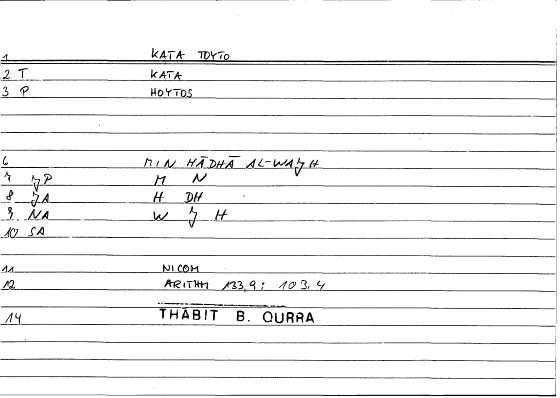 1 KATA TOYTO
2 T KATA
3 P HOYTOS
6 MIN HĀDHĀ AL-WAJH
7 JP M N
8 JA H DH
9 NA W J H
10 SA
11 NICOM
12 ARITHM 133,9 : 103,4
14 THĀBIT B. QURRA